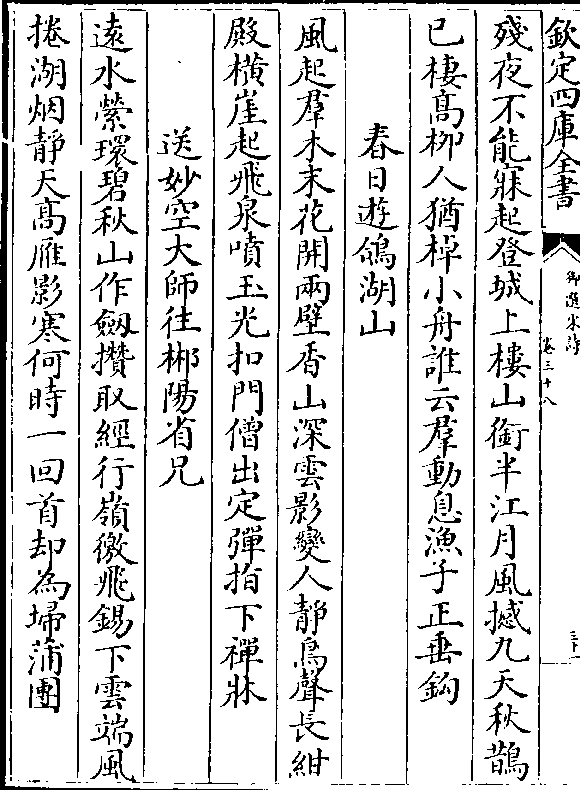 欽定四庫全書
御選宋詩
卷三十八
殘夜不能寐起登城上樓山銜半江月風撼九天秋鵲
已棲髙栁人猶棹小舟誰云羣動息漁子正垂鈎
春日遊鴿湖山
風起羣木末花開兩壁香山深雲影變人靜鳥聲長紺
殿橫崖起飛泉噴玉光扣門僧出定彈拍下禪牀
送妙空大師往郴陽省兄
逺水縈環碧秋山作劔攢取經行嶺徼飛錫下雲端風
捲湖烟靜天髙雁影寒何時一回首却為埽蒲團